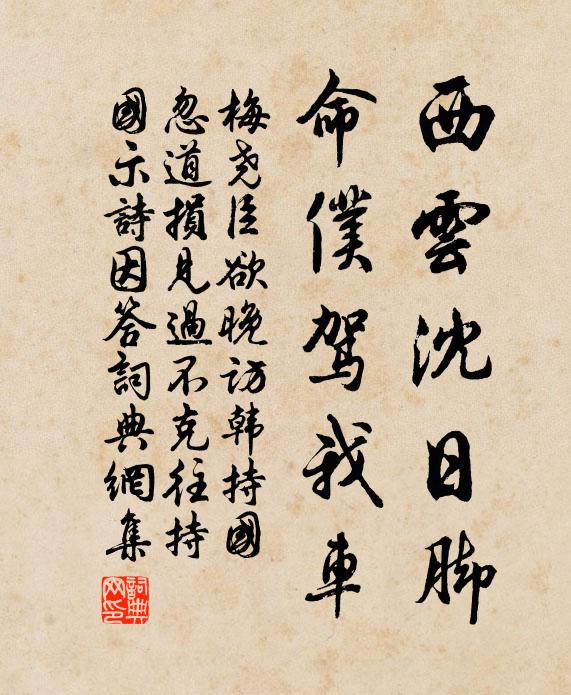 西雲沈日脚
命僕駕我車
梅尧臣欲晚访韩持國
忽道損見過不克往持
國示詩因答詞典網集
詞典网印